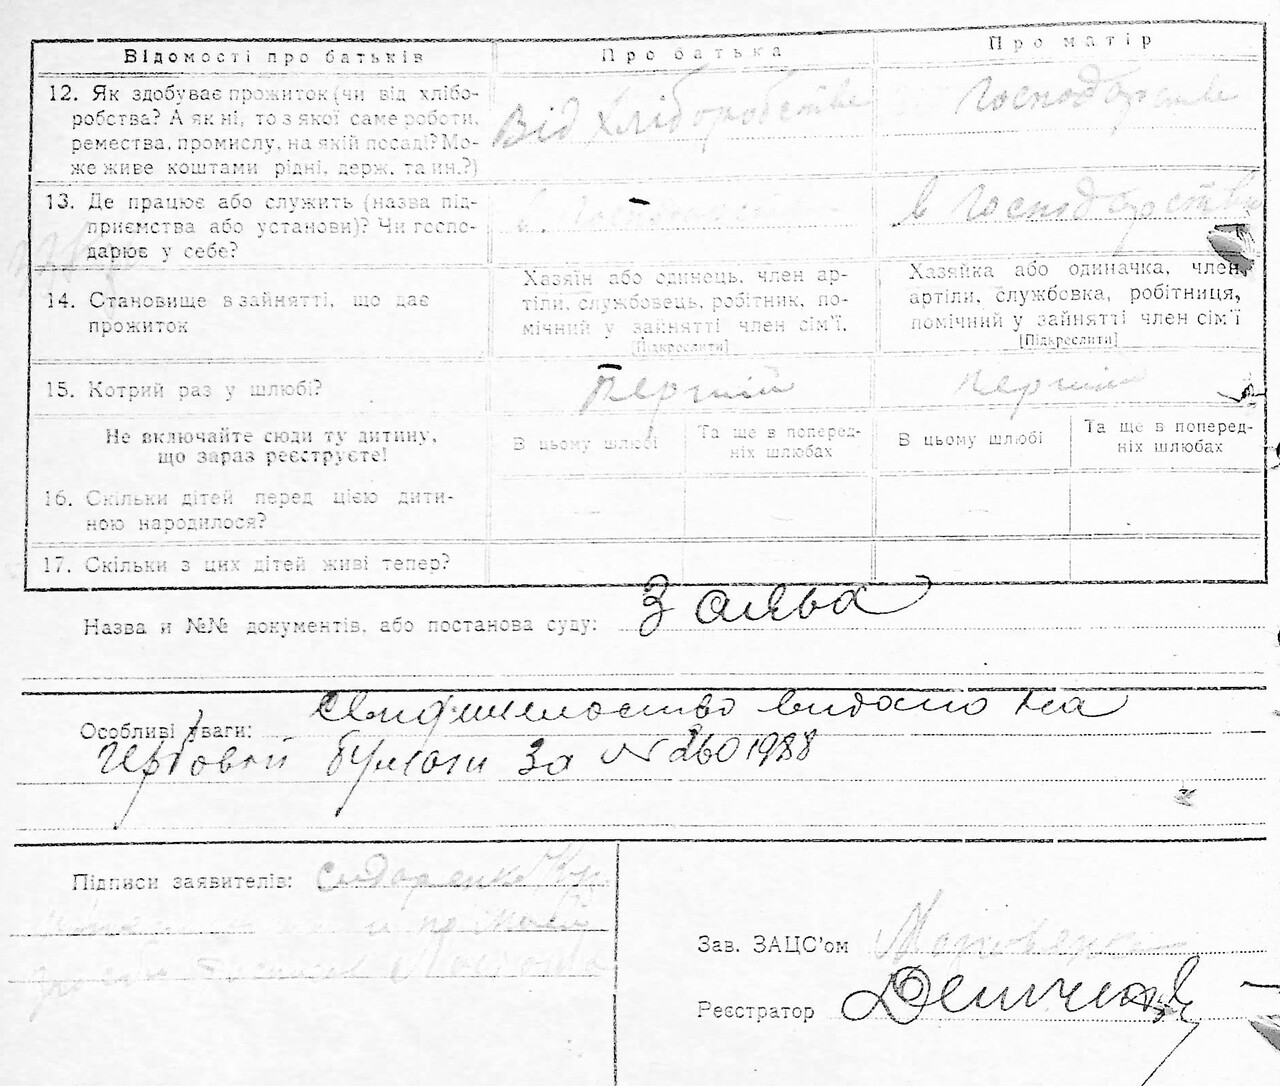 Відомості про батьків Про батька Про матір
12. Як здобуває прожиток (чи від хлібо-
робства? А як ні, то з якої саме роботи,
ремества, промислу, на якій посаді? Мо-
же живе коштами рідні, держ. та ин.?)
Від хліборобства
Господарства
13. Де працює або служить (назва під-
приємства або установи)? Чи госпо-
дарює у себе?
в господарстві
14. Становище в зайнятті, що дає
прожиток
Хазяїн або одинець, член ар-
тіли, службовець, робітник, по-
мічний у зайнятті член сім'ї.
[Підкреслити]
Хазяйка або одиначка, член,
артіли, службовка, робітниця,
помічний у зайнятті член сім'ї
[Підкреслити]
15. Котрий раз у шлюбі?
Перший перший
Не включайте сюди ту дитину,
що зараз реєструєте!
В цьому шлюбі
Та ще в поперед-
ніх шлюбах
В цьому шлюбі
Та ще в поперед-
ніх шлюбах
16. Скільки дітей перед цією дити-
ною народилося?
17. Скільки з цих дітей живі тепер?
Назва и №№ документів, або постанова суду: Заява
Особливі уваги: видано на
гербовой бумаги за №
Підписи заявителів: Сидоренко
Зав. ЗАЦС'ом
Реєстратор